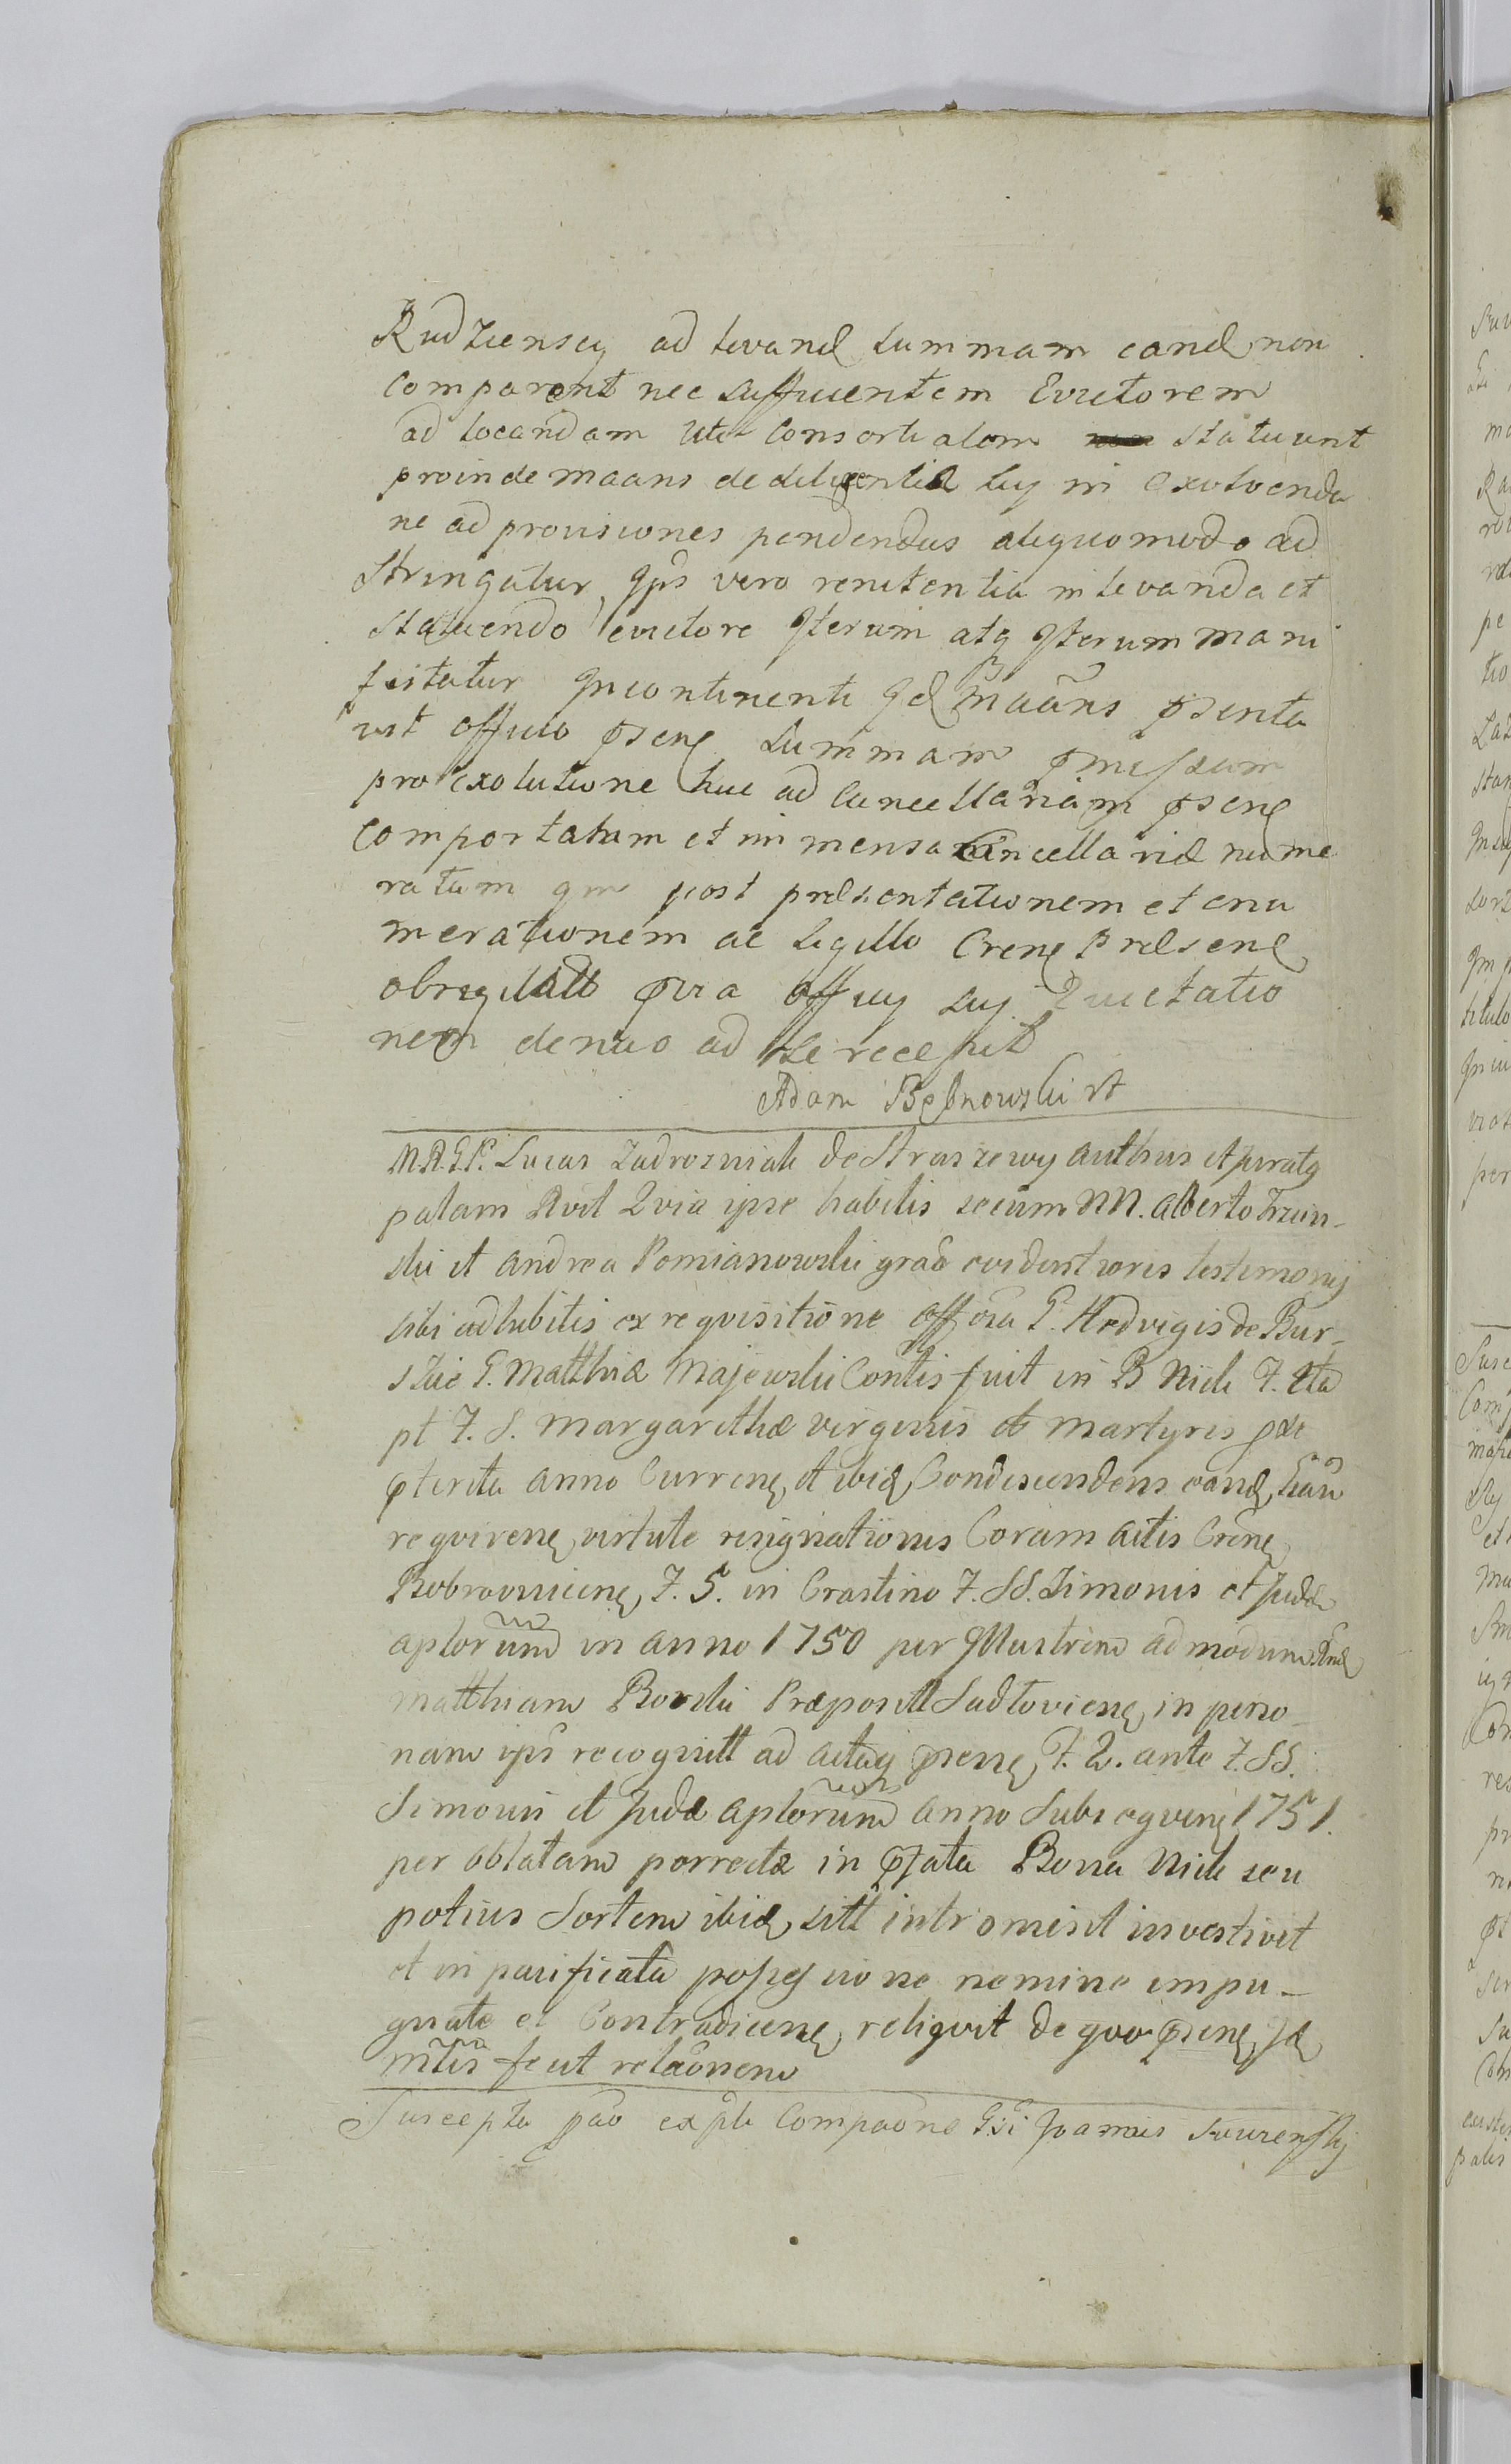 Rudzienscy ad levand summam eand non
comparent nec sufficientem Evictorem
ad locandam uti consortialem statuunt
proinde maans de diligentia suy in exolvenda
ne ad provisiones pendendas aliquomodo ad
stringatur, IpS vero renitentia in levanda et
statuendo evictore Iterum atq Iterum mani
festatur Incontinenti Id maans psenta
vit officio psen summam pmissam
pro exolutione huc ad Cancellariam psen
Comportatam et in mensa Cancellariæ nume
ratam qm post præsentationem et enu
merationem ac sigillo Cren Præsen
obsigillatt pvia officy suy Quietatio
nem denuo ad se recepit
Adam
M.R.G.P. Lucas Zadrozniak de Straszewy authus et juratq
palam Rvit Quia ipse habitis secum NN. Alberto
ski et Andrea Pomianowski grao evident ioris testimony
sibi adhibitis ex requisitione offosa G. Hedvigis de Bur-
skie G. Matthiæ Majewski Contis fuit in B Nick F. 4ta
pt F. S. Margarethæ virginis et Martyris pxe
pterita anno Curren et ibid Condescendens eand hau
requiren virtute resignationis Coram actis Cren
Bobrownicen F. 5. in Crastino F. SS. Simonis et Judæ
aplorum in anno 1750 per Illustrem admodum Rnd
Matthiam Borski Præposit Sadlovien in perso-
nam ips recognitt ad actaq psen F. 2. ante F. SS.
Simonis et Judæ aplorum anno Subsequen 1751.
per oblatam porrectæ in pfata Bona Nick seu
potius Sortem ibid sitt intromisit investivit
et in pacificata possessione nemine impu-
gnate et Contradicen reliquit de quo psen sæ
mtis fecit relaonem
Suscepta pao ex pte Compaone Gsi Joannis